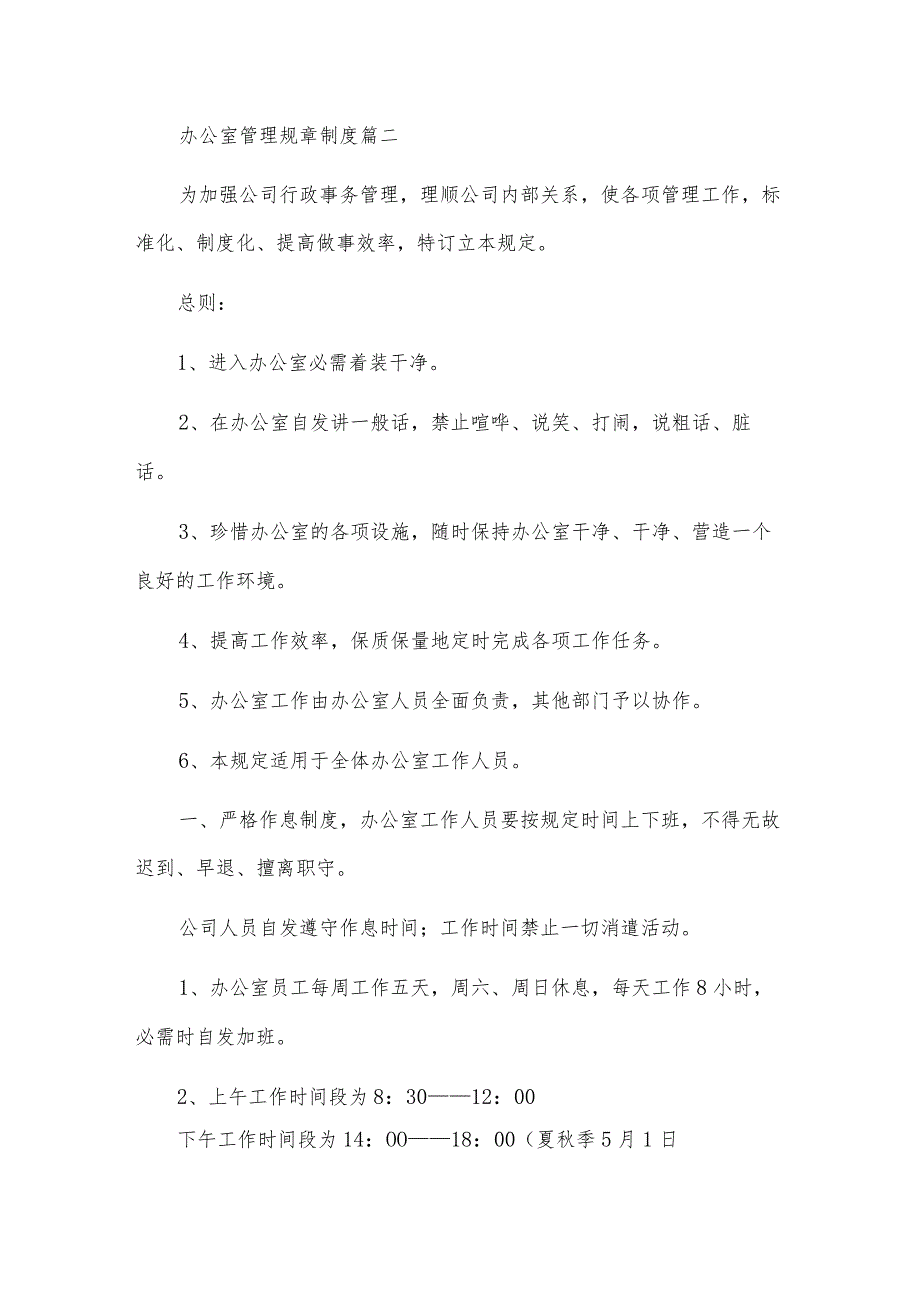 办公室管理规章制度篇二
为加强公司行政事务管理，理顺公司内部关系，使各项管理工作，标
准化、制度化、提高做事效率，特订立本规定。
总则：
1、进入办公室必需着装干净。
2、在办公室自发讲一般话，禁止喧哗、说笑、打闹，说粗话、脏
话。
3、珍惜办公室的各项设施，随时保持办公室干净、干净、营造一个
良好的工作环境。
4、提高工作效率，保质保量地定时完成各项工作任务。
5、办公室工作由办公室人员全面负责，其他部门予以协作。
6、本规定适用于全体办公室工作人员。
一、严格作息制度，办公室工作人员要按规定时间上下班，不得无故
迟到、早退、擅离职守。
公司人员自发遵守作息时间；工作时间禁止一切消遣活动。
1、办公室员工每周工作五天，周六、周日休息，每天工作8小时，
必需时自发加班。
2、上午工作时间段为8：30——12：00
下午工作时间段为14：OO——18：00（夏秋季5月1日